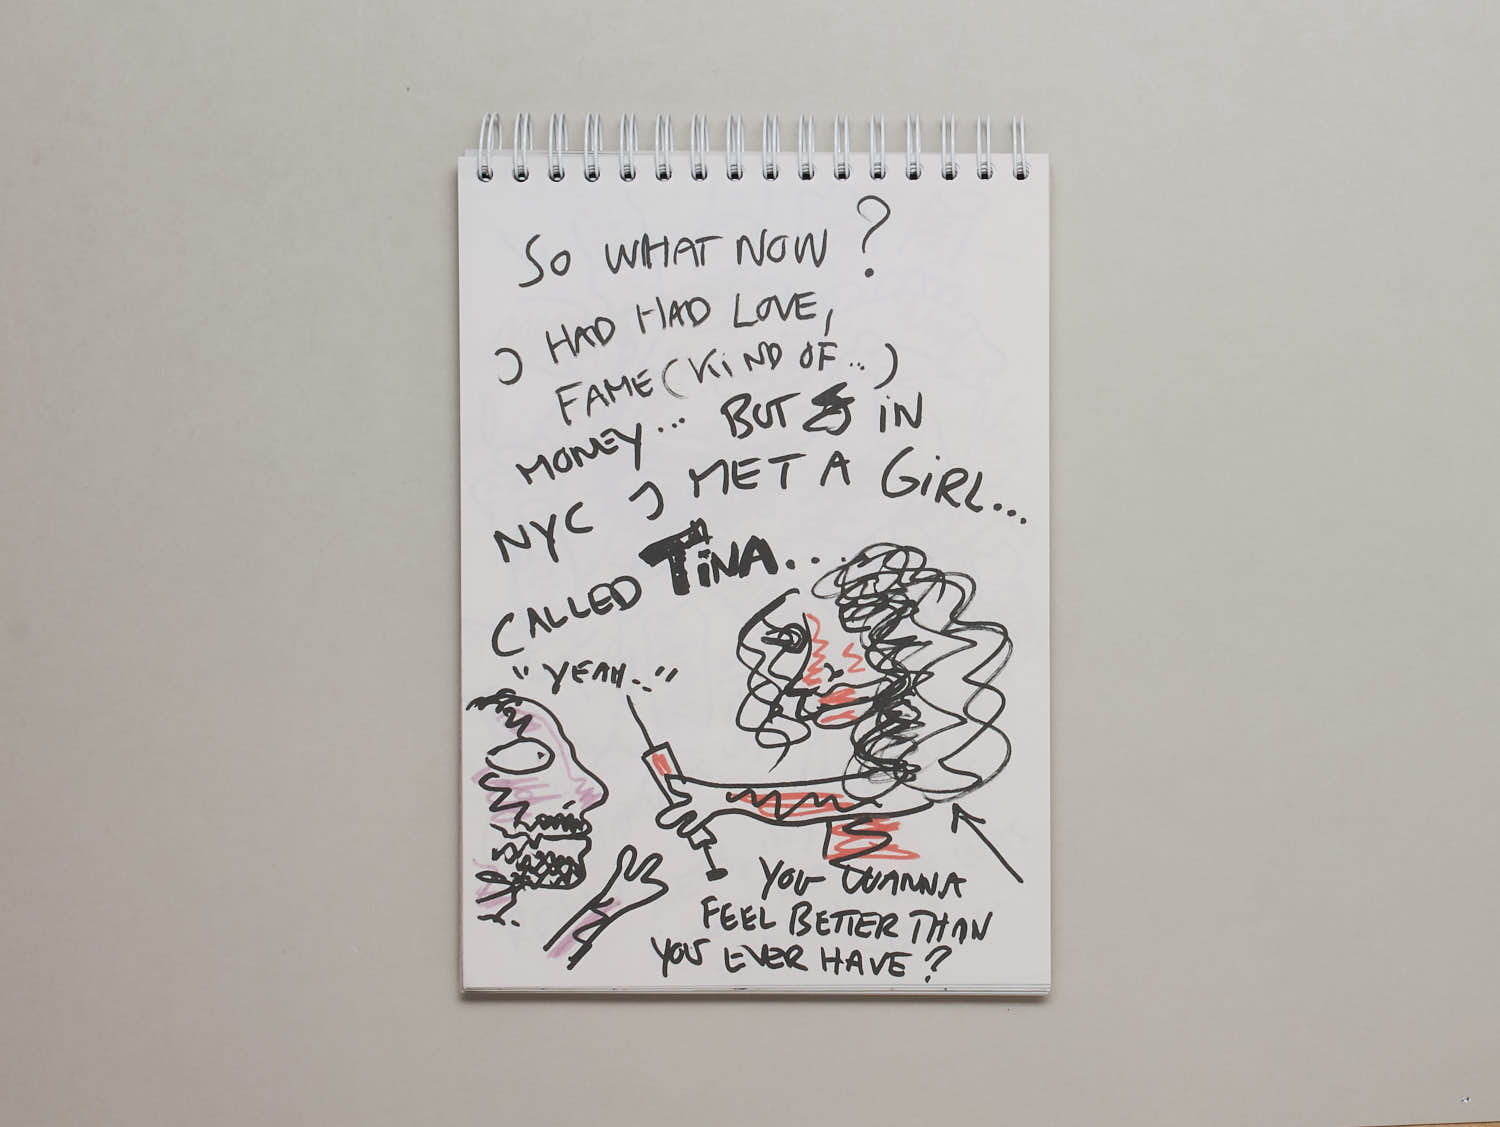 SO WHAT NOW?
I HAD HAD LOVE,
FAME (KIND OF...)
MONEY... BUT IN
NYC I MET A GIRL...
CALLED TINA...
"YEAH..."
YOU WANNA
FEEL BETTER THAN
YOU EVER HAVE?